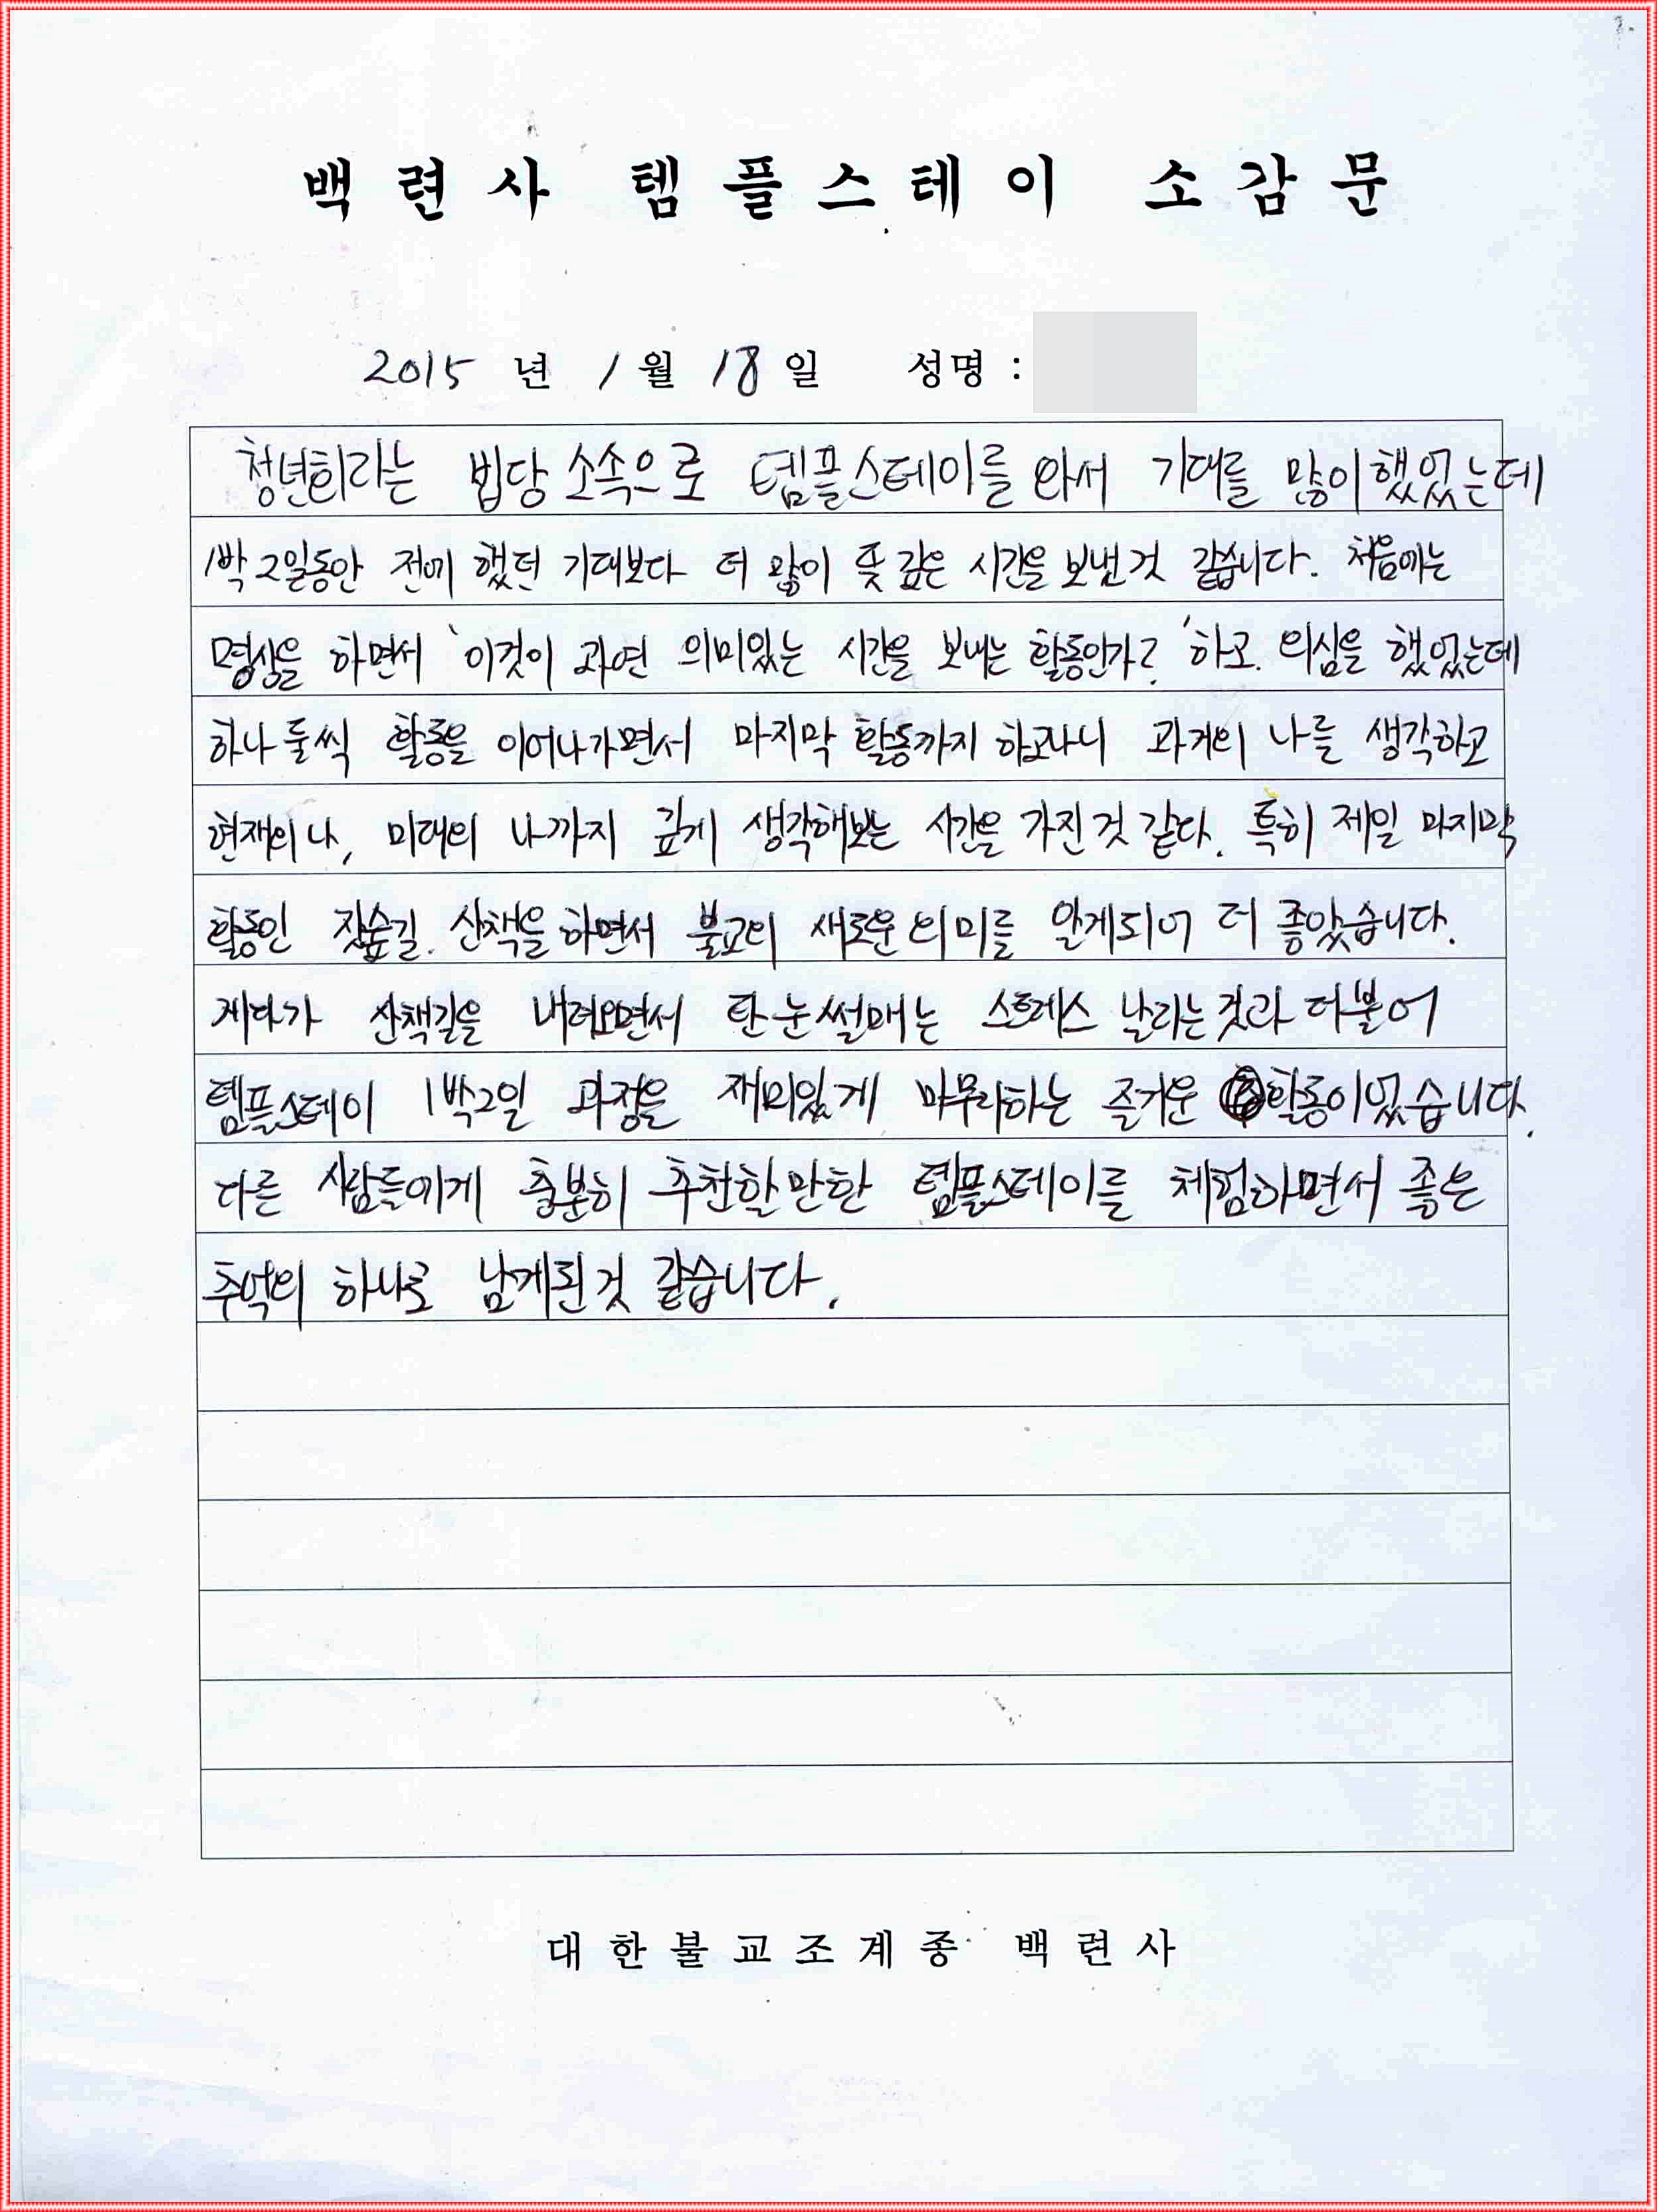 백련사 템플스테이 소감문
2015 년 1 월 18 일 성명 :
청년회라는 법당 소속으로 템플스테이를 와서 기대를 많이 했었는데
1박 2일동안 전에 했던 기대보다 더 많이 뜻 깊은 시간을 보낸것 같습니다. 처음에는
명상을 하면서 '이것이 과연 의미있는 시간을 보내는 활동인가?' 하고 의심을 했었는데
하나 둘씩 활동을 이어나가면서 마지막 활동까지 하고나니 과거의 나를 생각하고
현재의 나, 미래의 나까지 깊게 생각해보는 시간을 가진것 같다. 특히 제일 마지막
활동인 잣숲길 산책을 하면서 불교의 새로운 의미를 알게되어 더 좋았습니다.
게다가 산책길을 내려오면서 탄 눈썰매는 스트레스 날리는것과 더불어
템플스테이 1박2일 과정을 재미있게 마무리하는 즐거운 활동이었습니다.
다른 사람들에게 충분히 추천할만한 템플스테이를 체험하면서 좋은
추억의 하나로 남게된것 같습니다.
대한불교조계종 백련사